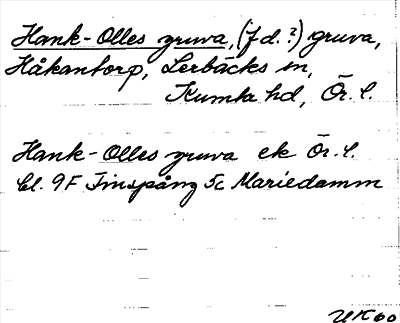 Hank-Olles gruva, (f d.?) gruva,
Håkantorp, Lerbäcks sn,
Kumla hd, Ör. l.
Hank-Olles gruva ek Ör. l.
bl. 9F Finspång 5c Mariedamm
UK60